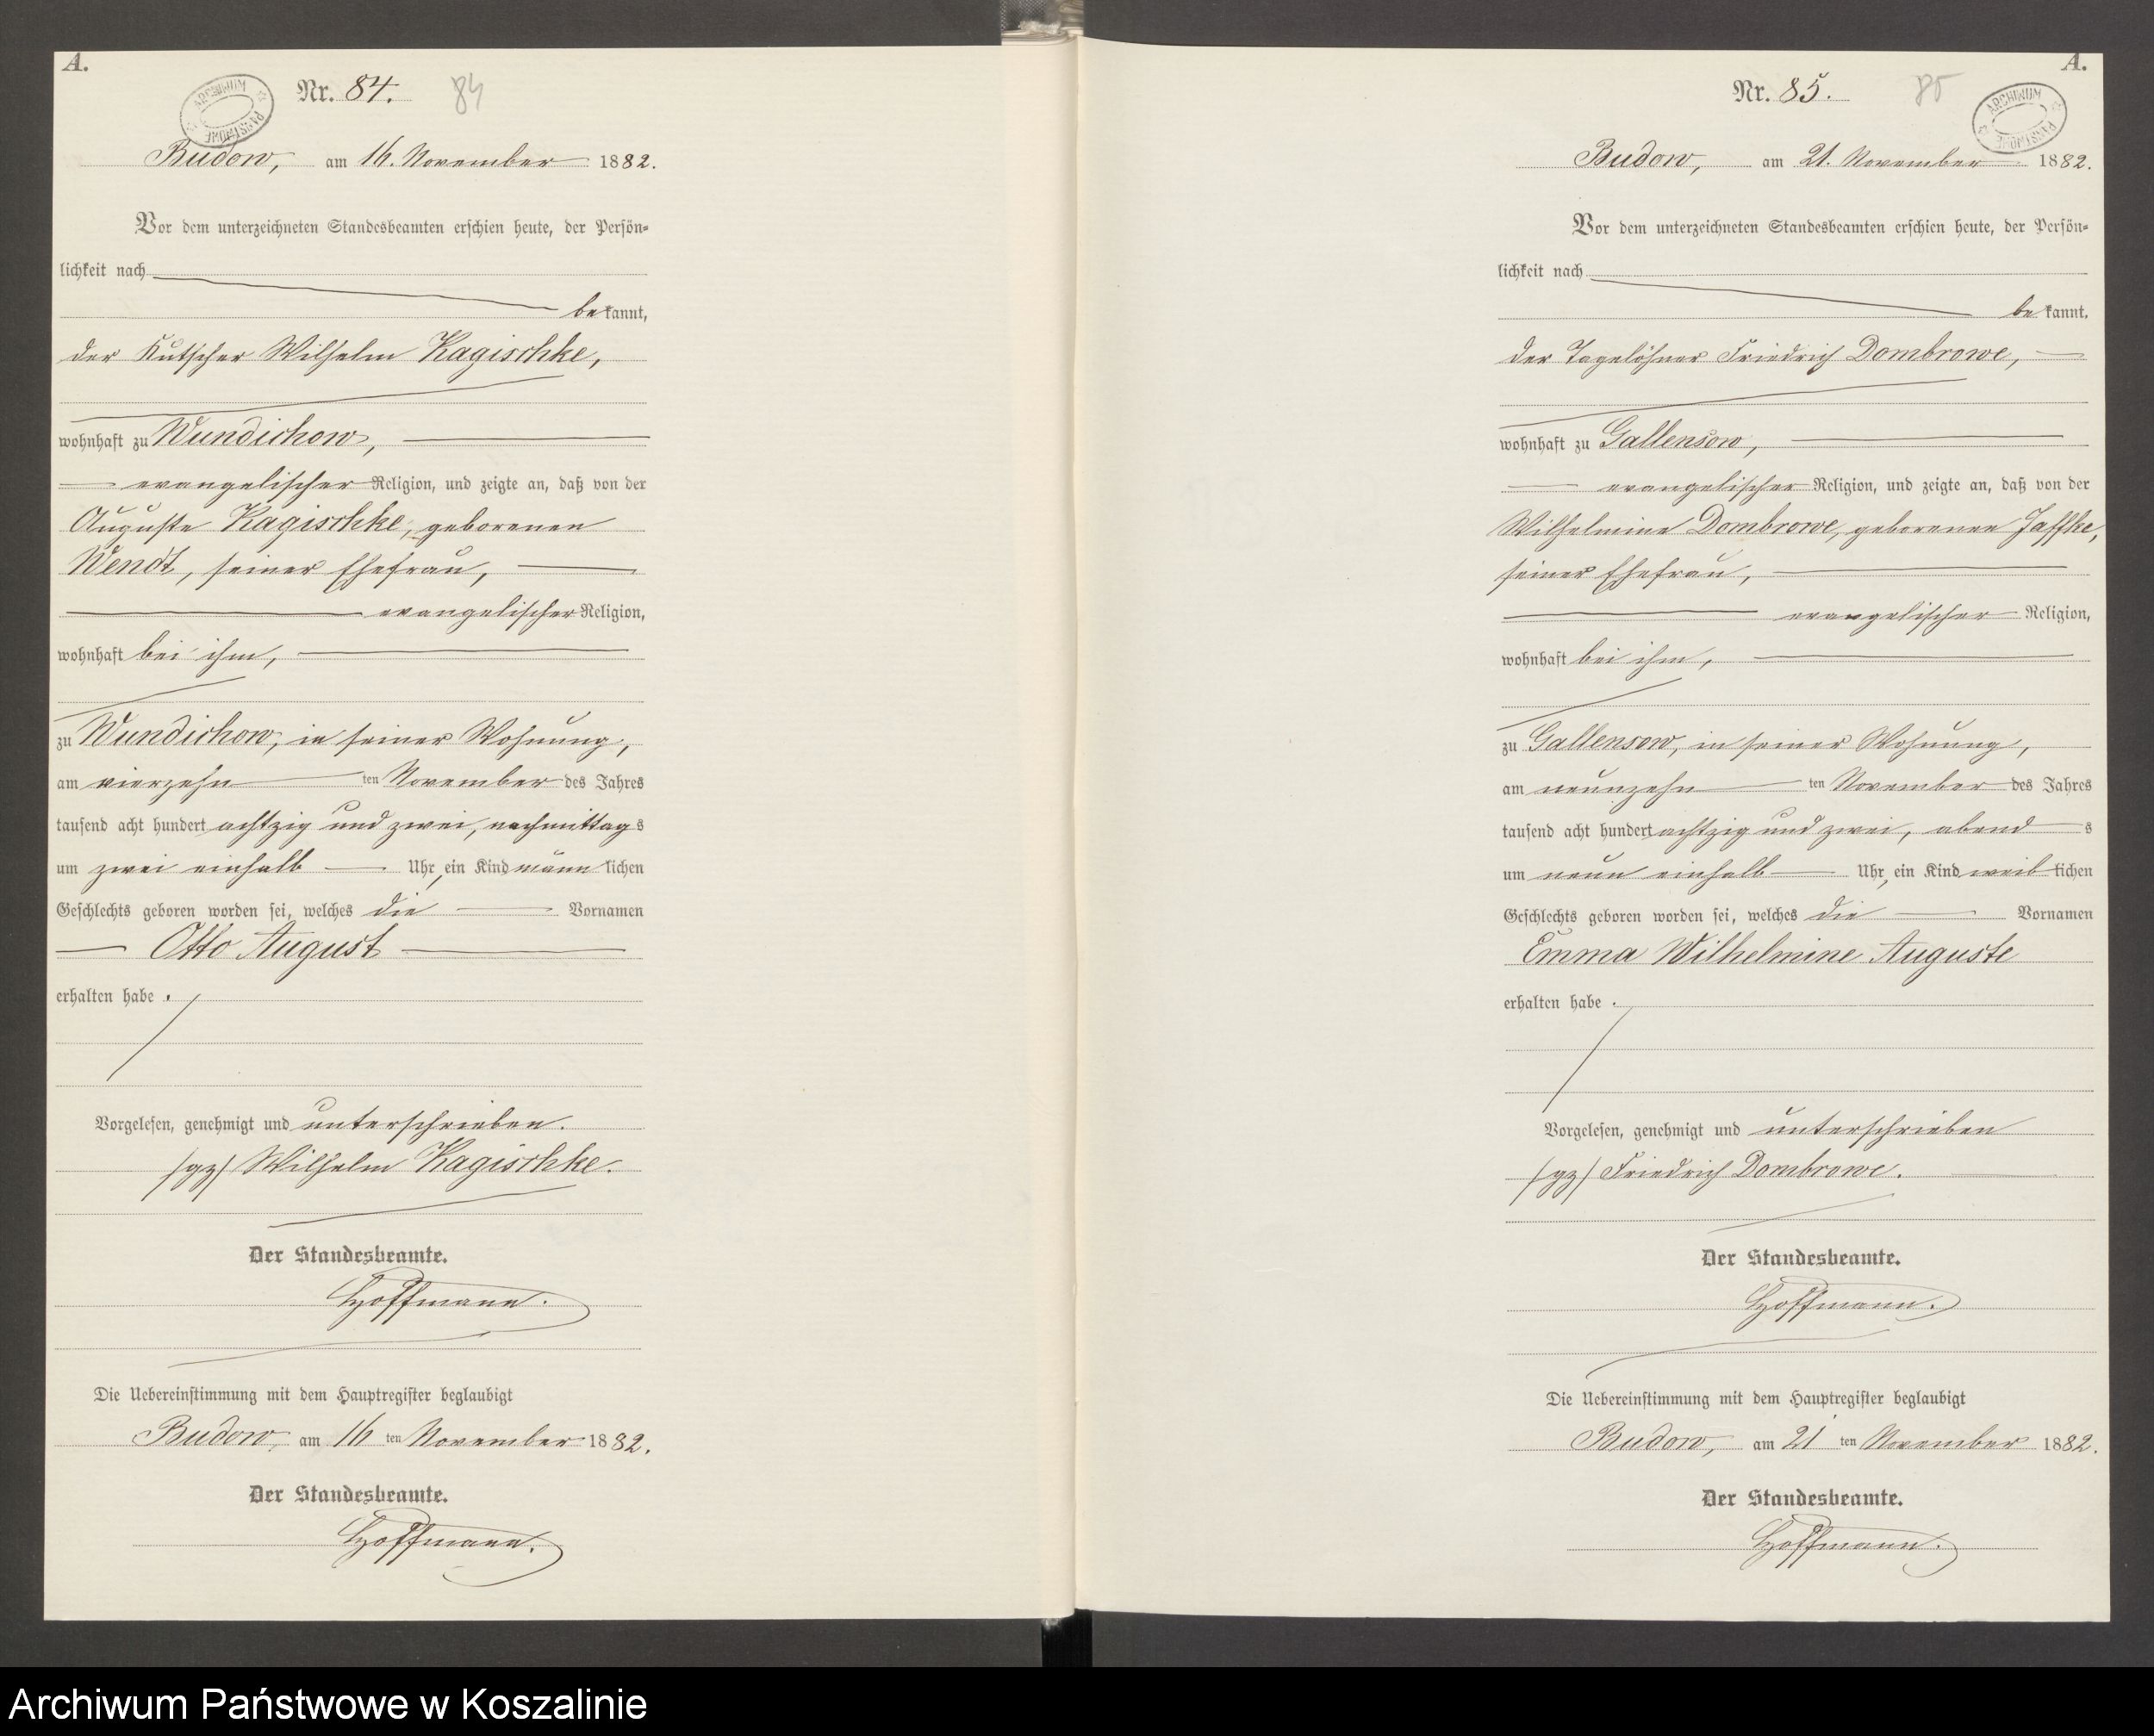 A.
ARCHIWUM PAŃSTWOWE
Nr. 84. 84
Budow, am 16. November 1882.
Vor dem unterzeichneten Standesbeamten erschien heute, der Persön-
lichkeit nach
bekannt,
der Kutscher Wilhelm Kagischke,
wohnhaft zu Wundichow,
evangelischer Religion, und zeigte an, daß von der
Auguste Kagischke, geborenen
Wendt, seiner Ehefrau,
evangelischer Religion,
wohnhaft bei ihm,
zu Wundichow, in seiner Wohnung,
am vierzehn ten November des Jahres
tausend acht hundert achtzig und zwei, nachmittags
um zwei einhalb Uhr, ein Kind männlichen
Geschlechts geboren worden sei, welches die Vornamen
Otto August
erhalten habe.
Vorgelesen, genehmigt und unterschrieben.
/gz/ Wilhelm Kagischke.
Der Standesbeamte.
Hoffmann.
Die Uebereinstimmung mit dem Hauptregister beglaubigt
Budow, am 16 ten November 1882.
Der Standesbeamte.
Hoffmann.
A.
ARCHIWUM PAŃSTWOWE
Nr. 85. 85
Budow, am 21. November 1882.
Vor dem unterzeichneten Standesbeamten erschien heute, der Persön-
lichkeit nach
bekannt,
der Tagelöhner Friedrich Dombrowe,
wohnhaft zu Gallensow,
evangelischer Religion, und zeigte an, daß von der
Wilhelmine Dombrowe, geborenen Jaffke,
seiner Ehefrau,
evangelischer Religion,
wohnhaft bei ihm,
zu Gallensow, in seiner Wohnung,
am neunzehn ten November des Jahres
tausend acht hundert achtzig und zwei, abends
um neun einhalb Uhr, ein Kind weiblichen
Geschlechts geboren worden sei, welches die Vornamen
Emma Wilhelmine Auguste
erhalten habe.
Vorgelesen, genehmigt und unterschrieben
/gz/ Friedrich Dombrowe.
Der Standesbeamte.
Hoffmann.
Die Uebereinstimmung mit dem Hauptregister beglaubigt
Budow, am 21 ten November 1882.
Der Standesbeamte.
Hoffmann.
Archiwum Państwowe w Koszalinie